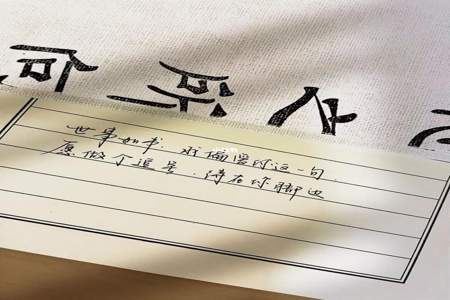 所
世事如书.我偏爱你这一句
愿做个逗号.待在你脚边